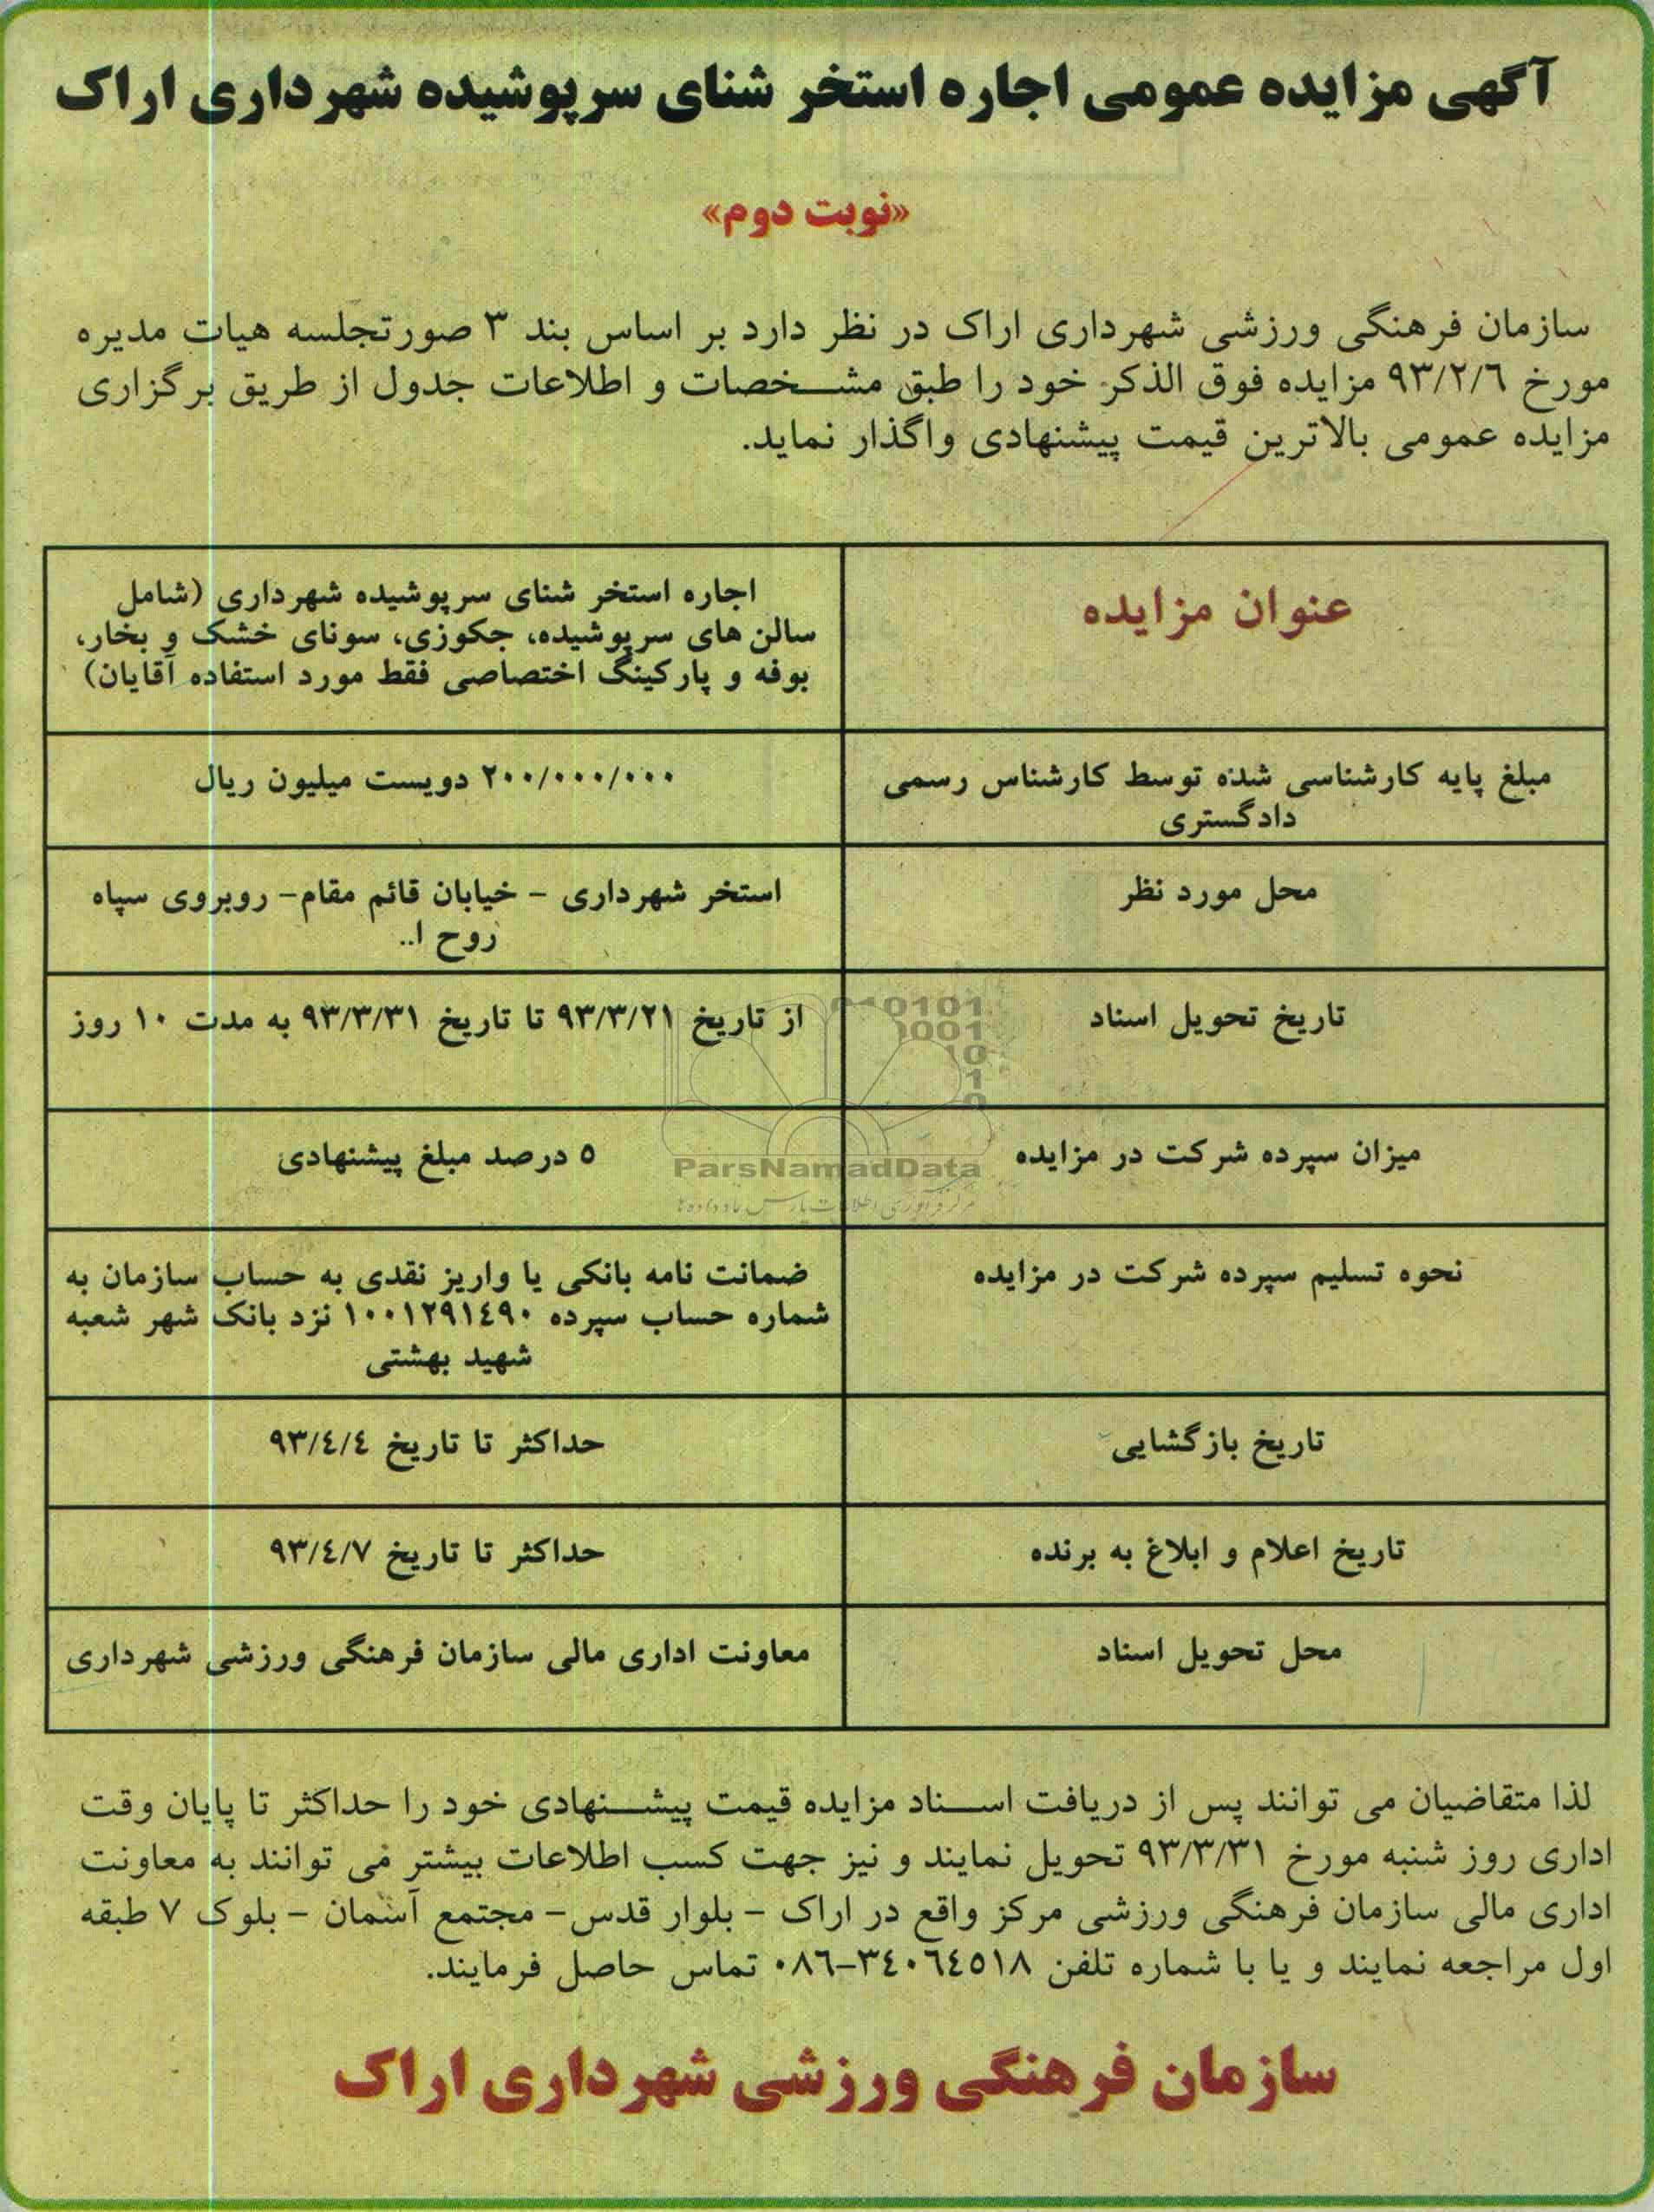 آگهی مزایده عمومی اجاره استخر شنای سرپوشیده شهرداری اراک
«نوبت دوم»
سازمان فرهنگی ورزشی شهرداری اراک در نظر دارد بر اساس بند ۳ صورتجلسه هیات مدیره
مورخ ۹۳/۲/۶ مزایده فوق الذکر خود را طبق مشخصات و اطلاعات جدول از طریق برگزاری
مزایده عمومی بالاترین قیمت پیشنهادی واگذار نماید.
عنوان مزایده
اجاره استخر شنای سرپوشیده شهرداری (شامل
سالن های سرپوشیده، جکوزی، سونای خشک و بخار،
بوفه و پارکینگ اختصاصی فقط مورد استفاده آقایان)
مبلغ پایه کارشناسی شده توسط کارشناس رسمی
دادگستری
۲۰۰/۰۰۰/۰۰۰ دویست میلیون ریال
محل مورد نظر
استخر شهرداری - خیابان قائم مقام- روبروی سپاه
روح ا..
تاریخ تحویل اسناد
از تاریخ ۹۳/۳/۲۱ تا تاریخ ۹۳/۳/۳۱ به مدت ۱۰ روز
میزان سپرده شرکت در مزایده
۵ درصد مبلغ پیشنهادی
نحوه تسلیم سپرده شرکت در مزایده
ضمانت نامه بانکی یا واریز نقدی به حساب سازمان به
شماره حساب سپرده ۱۰۰۱۲۹۱٤۹۰ نزد بانک شهر شعبه
شهید بهشتی
تاریخ بازگشایی
حداکثر تا تاریخ ۹۳/٤/٤
تاریخ اعلام و ابلاغ به برنده
حداکثر تا تاریخ ۹۳/٤/۷
محل تحویل اسناد
معاونت اداری مالی سازمان فرهنگی ورزشی شهرداری
لذا متقاضیان می توانند پس از دریافت اسناد مزایده قیمت پیشنهادی خود را حداکثر تا پایان وقت
اداری روز شنبه مورخ ۹۳/۳/۳۱ تحویل نمایند و نیز جهت کسب اطلاعات بیشتر می توانند به معاونت
اداری مالی سازمان فرهنگی ورزشی مرکز واقع در اراک - بلوار قدس- مجتمع آسمان - بلوک ۷ طبقه
اول مراجعه نمایند و یا با شماره تلفن ۳٤۰٦٤٥۱۸-۰۸٦ تماس حاصل فرمایند.
سازمان فرهنگی ورزشی شهرداری اراک
ParsNamadData
مرکز فرآوری اطلاعات پارس نماد داده ها